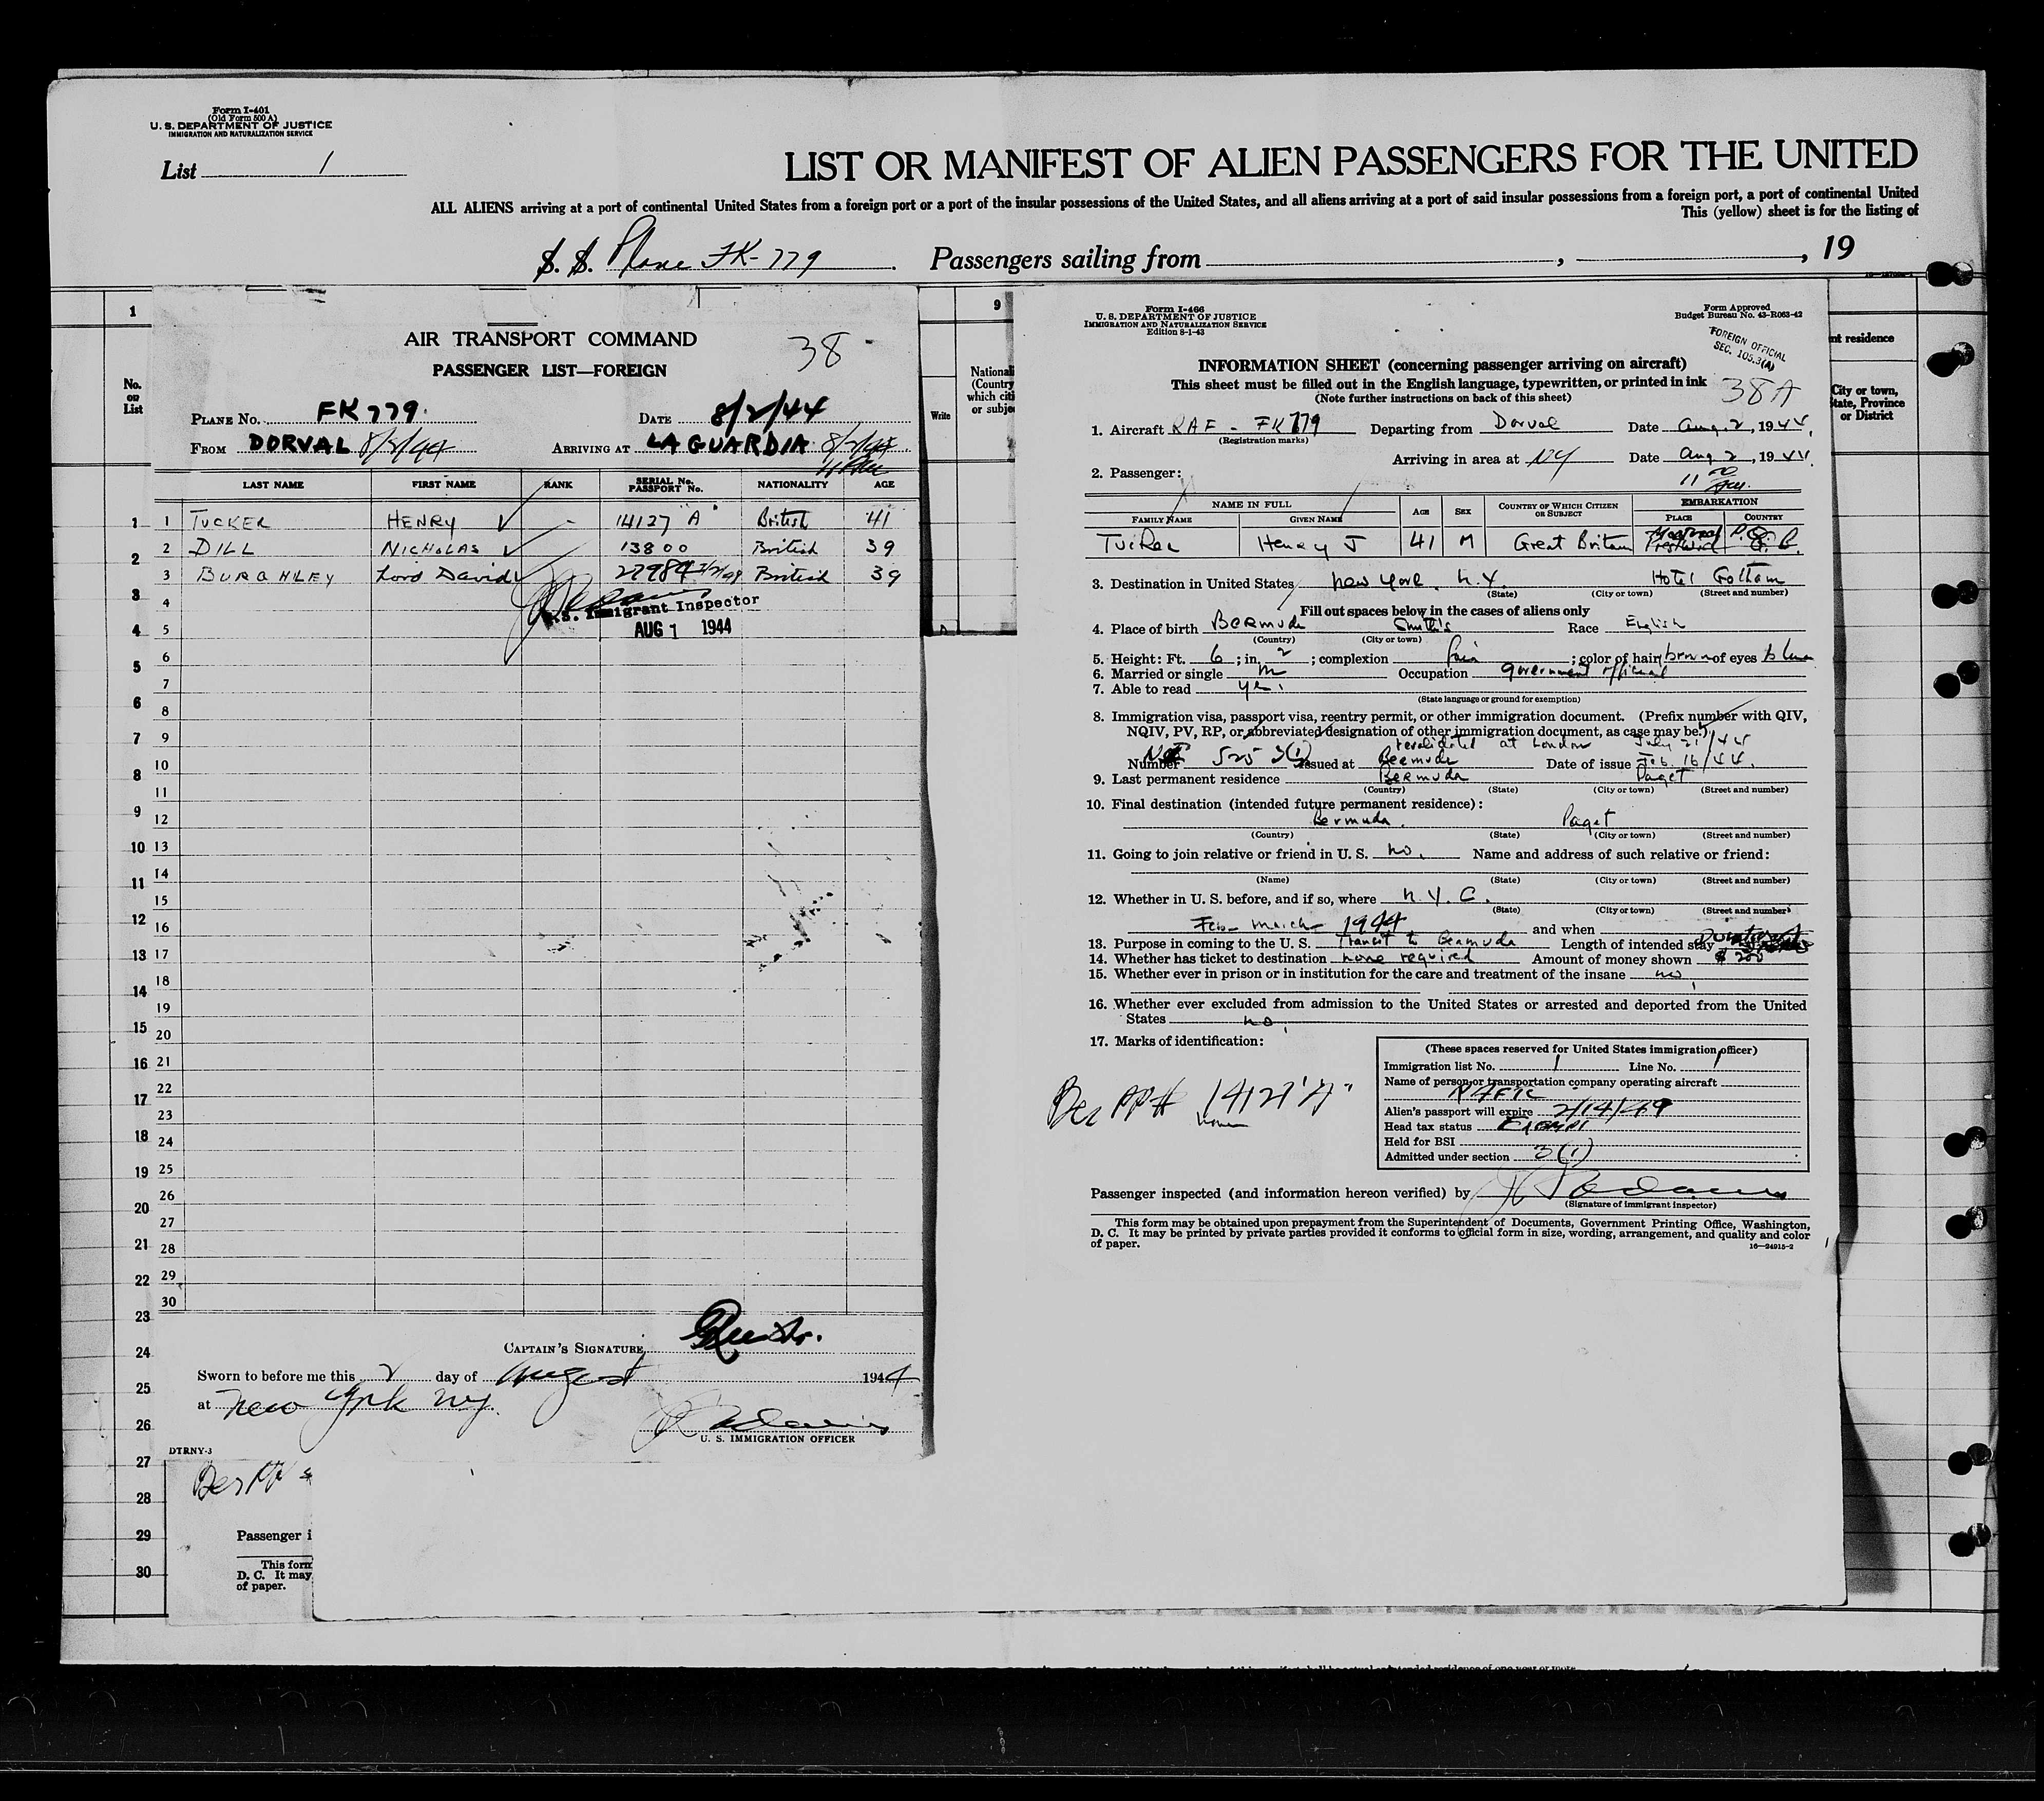 Form I-401
(Old Form 500 A)
U. S. DEPARTMENT OF JUSTICE
IMMIGRATION AND NATURALIZATION SERVICE
List 1
LIST OR MANIFEST OF ALIEN PASSENGERS FOR THE UNITED
ALL ALIENS arriving at a port of continental United States from a foreign port or a port of the insular possessions of the United States, and all aliens arriving at a port of said insular possessions from a foreign port, a port of continental United
This (yellow) sheet is for the listing of
S. S. Plane FK-779 Passengers sailing from , , 19
1
No. on List
AIR TRANSPORT COMMAND
38
PASSENGER LIST—FOREIGN
PLANE NO. FK 779. DATE 8/2/44
FROM DORVAL 8/2/44 ARRIVING AT LA GUARDIA 8/2/44
LAST NAME FIRST NAME RANK SERIAL No. PASSPORT No. NATIONALITY AGE
1 1 TUCKER HENRY - 14127 "A" British 41
2 2 DILL NICHOLAS 13800 British 39
3 3 BURGHLEY Lord David 27984 British 39
4
U.S. Immigrant Inspector
4 5 AUG 1 1944
5 6
7
6 8
7 9
10
8 11
9 12
10 13
11 14
15
12 16
13 17
14 18
19
15 20
16 21
22
17 23
18 24
19 25
20 26
27
21 28
22 29
30
23
24
25
26
27
28
29
30
CAPTAIN'S SIGNATURE
Sworn to before me this 2 day of August 1944
at New York NY.
U. S. IMMIGRATION OFFICER
DTRNY-3
Passenger i
This form
D. C. It may
of paper.
9
National
(Country
which citi
or subje
Write
nt residence
City or town,
State, Province
or District
Form I-466
U. S. DEPARTMENT OF JUSTICE
IMMIGRATION AND NATURALIZATION SERVICE
Edition 8-1-43
Form Approved
Budget Bureau No. 43-R063-42
FOREIGN OFFICIAL
SEC. 105.3(A)
INFORMATION SHEET (concerning passenger arriving on aircraft)
This sheet must be filled out in the English language, typewritten, or printed in ink
(Note further instructions on back of this sheet)
38A
1. Aircraft RAF - FK779 Departing from Dorval Date Aug. 2, 1944,
(Registration marks)
Arriving in area at NY Date Aug 2, 1944.
2. Passenger:
NAME IN FULL AGE SEX COUNTRY OF WHICH CITIZEN OR SUBJECT EMBARKATION
FAMILY NAME GIVEN NAME PLACE COUNTRY
Tucker Henry J 41 M Great Britain
3. Destination in United States New York N.Y. Hotel Gotham
(State) (City or town) (Street and number)
Fill out spaces below in the cases of aliens only
4. Place of birth Bermuda Smith's Race English
(Country) (City or town)
5. Height: Ft. 6 ; in. 2 ; complexion fair ; color of hair brown of eyes blue
6. Married or single m Occupation government official
7. Able to read yes.
(State language or ground for exemption)
8. Immigration visa, passport visa, reentry permit, or other immigration document. (Prefix number with QIV,
NQIV, PV, RP, or abbreviated designation of other immigration document, as case may be.)
revalidated at London July 21/44
Number 525 3(1) Issued at Bermuda Date of issue Feb. 16/44.
9. Last permanent residence Bermuda Paget
(Country) (State) (City or town) (Street and number)
10. Final destination (intended future permanent residence):
Bermuda. Paget
(Country) (State) (City or town) (Street and number)
11. Going to join relative or friend in U. S. no. Name and address of such relative or friend:
(Name) (State) (City or town) (Street and number)
12. Whether in U. S. before, and if so, where N.Y.C.
(State) (City or town) (Street and number)
Feb- March 1944 and when
13. Purpose in coming to the U. S. transit to Bermuda Length of intended stay
14. Whether has ticket to destination none required Amount of money shown $ 200
15. Whether ever in prison or in institution for the care and treatment of the insane no
16. Whether ever excluded from admission to the United States or arrested and deported from the United
States no.
17. Marks of identification:
(These spaces reserved for United States immigration officer)
Immigration list No. 1 Line No. 1
Name of person or transportation company operating aircraft
RAFTC
Alien's passport will expire 2/14/49
Head tax status Exempt
Held for BSI
Admitted under section 3(1)
Ber PP# 14127 "A"
Passenger inspected (and information hereon verified) by
(Signature of immigrant inspector)
This form may be obtained upon prepayment from the Superintendent of Documents, Government Printing Office, Washington,
D. C. It may be printed by private parties provided it conforms to official form in size, wording, arrangement, and quality and color
of paper.
16—24915-2